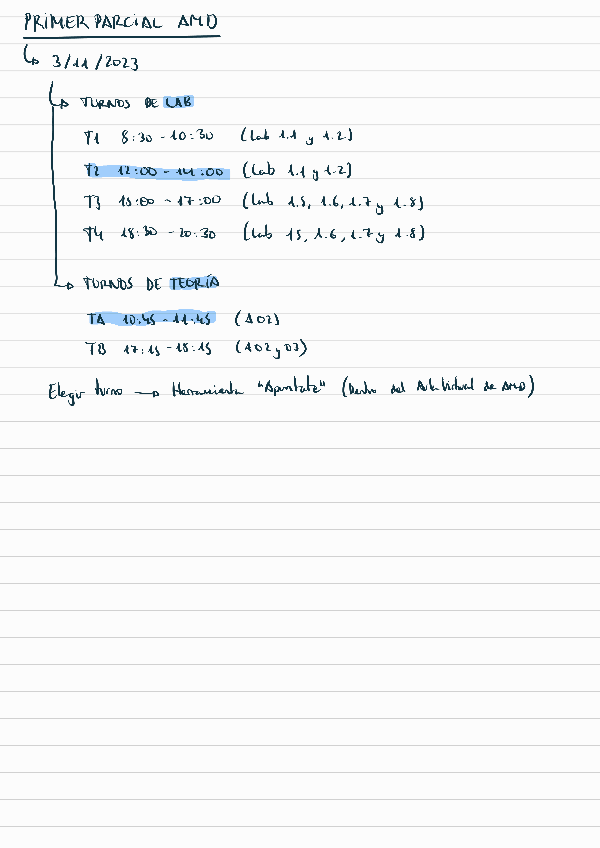 PRIMER PARCIAL AMD
↳ 3/11/2023
↳ TURNOS DE LAB
T1 8:30 - 10:30 (Lab 1.1 y 1.2)
T2 12:00 - 14:00 (Lab 1.1 y 1.2)
T3 15:00 - 17:00 (Lab 1.5, 1.6, 1.7 y 1.8)
T4 18:30 - 20:30 (Lab 15, 1.6, 1.7 y 1.8)
↳ TURNOS DE TEORÍA
TA 10:45 - 11:45 (A02)
TB 17:15 - 18:15 (A02 y 03)
Elegir turno → Herramienta "Apúntate" (Dentro del Aula Virtual de AMD)